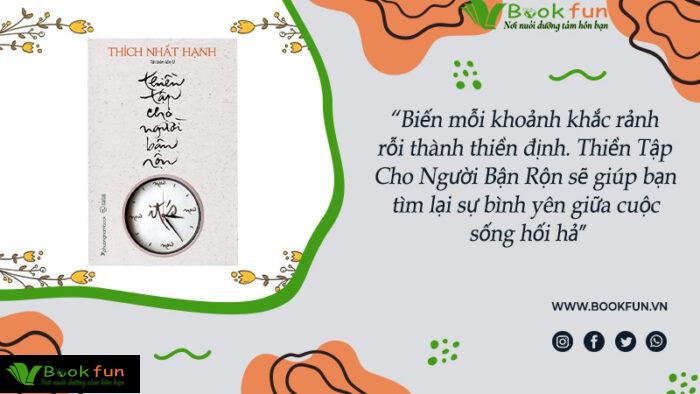 Book fun
Nơi nuôi dưỡng tâm hồn bạn
THÍCH NHẤT HẠNH
thiền
tập
cho
người
bận
rộn
now
it's
now
phuongnambook
“Biến mỗi khoảnh khắc rảnh
rỗi thành thiền định. Thiền Tập
Cho Người Bận Rộn sẽ giúp bạn
tìm lại sự bình yên giữa cuộc
sống hối hả”
WWW.BOOKFUN.VN
Book fun
Nơi nuôi dưỡng tâm hồn bạn